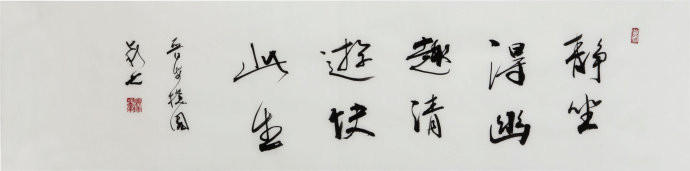 静坐
得幽
趣清
遊快
此生